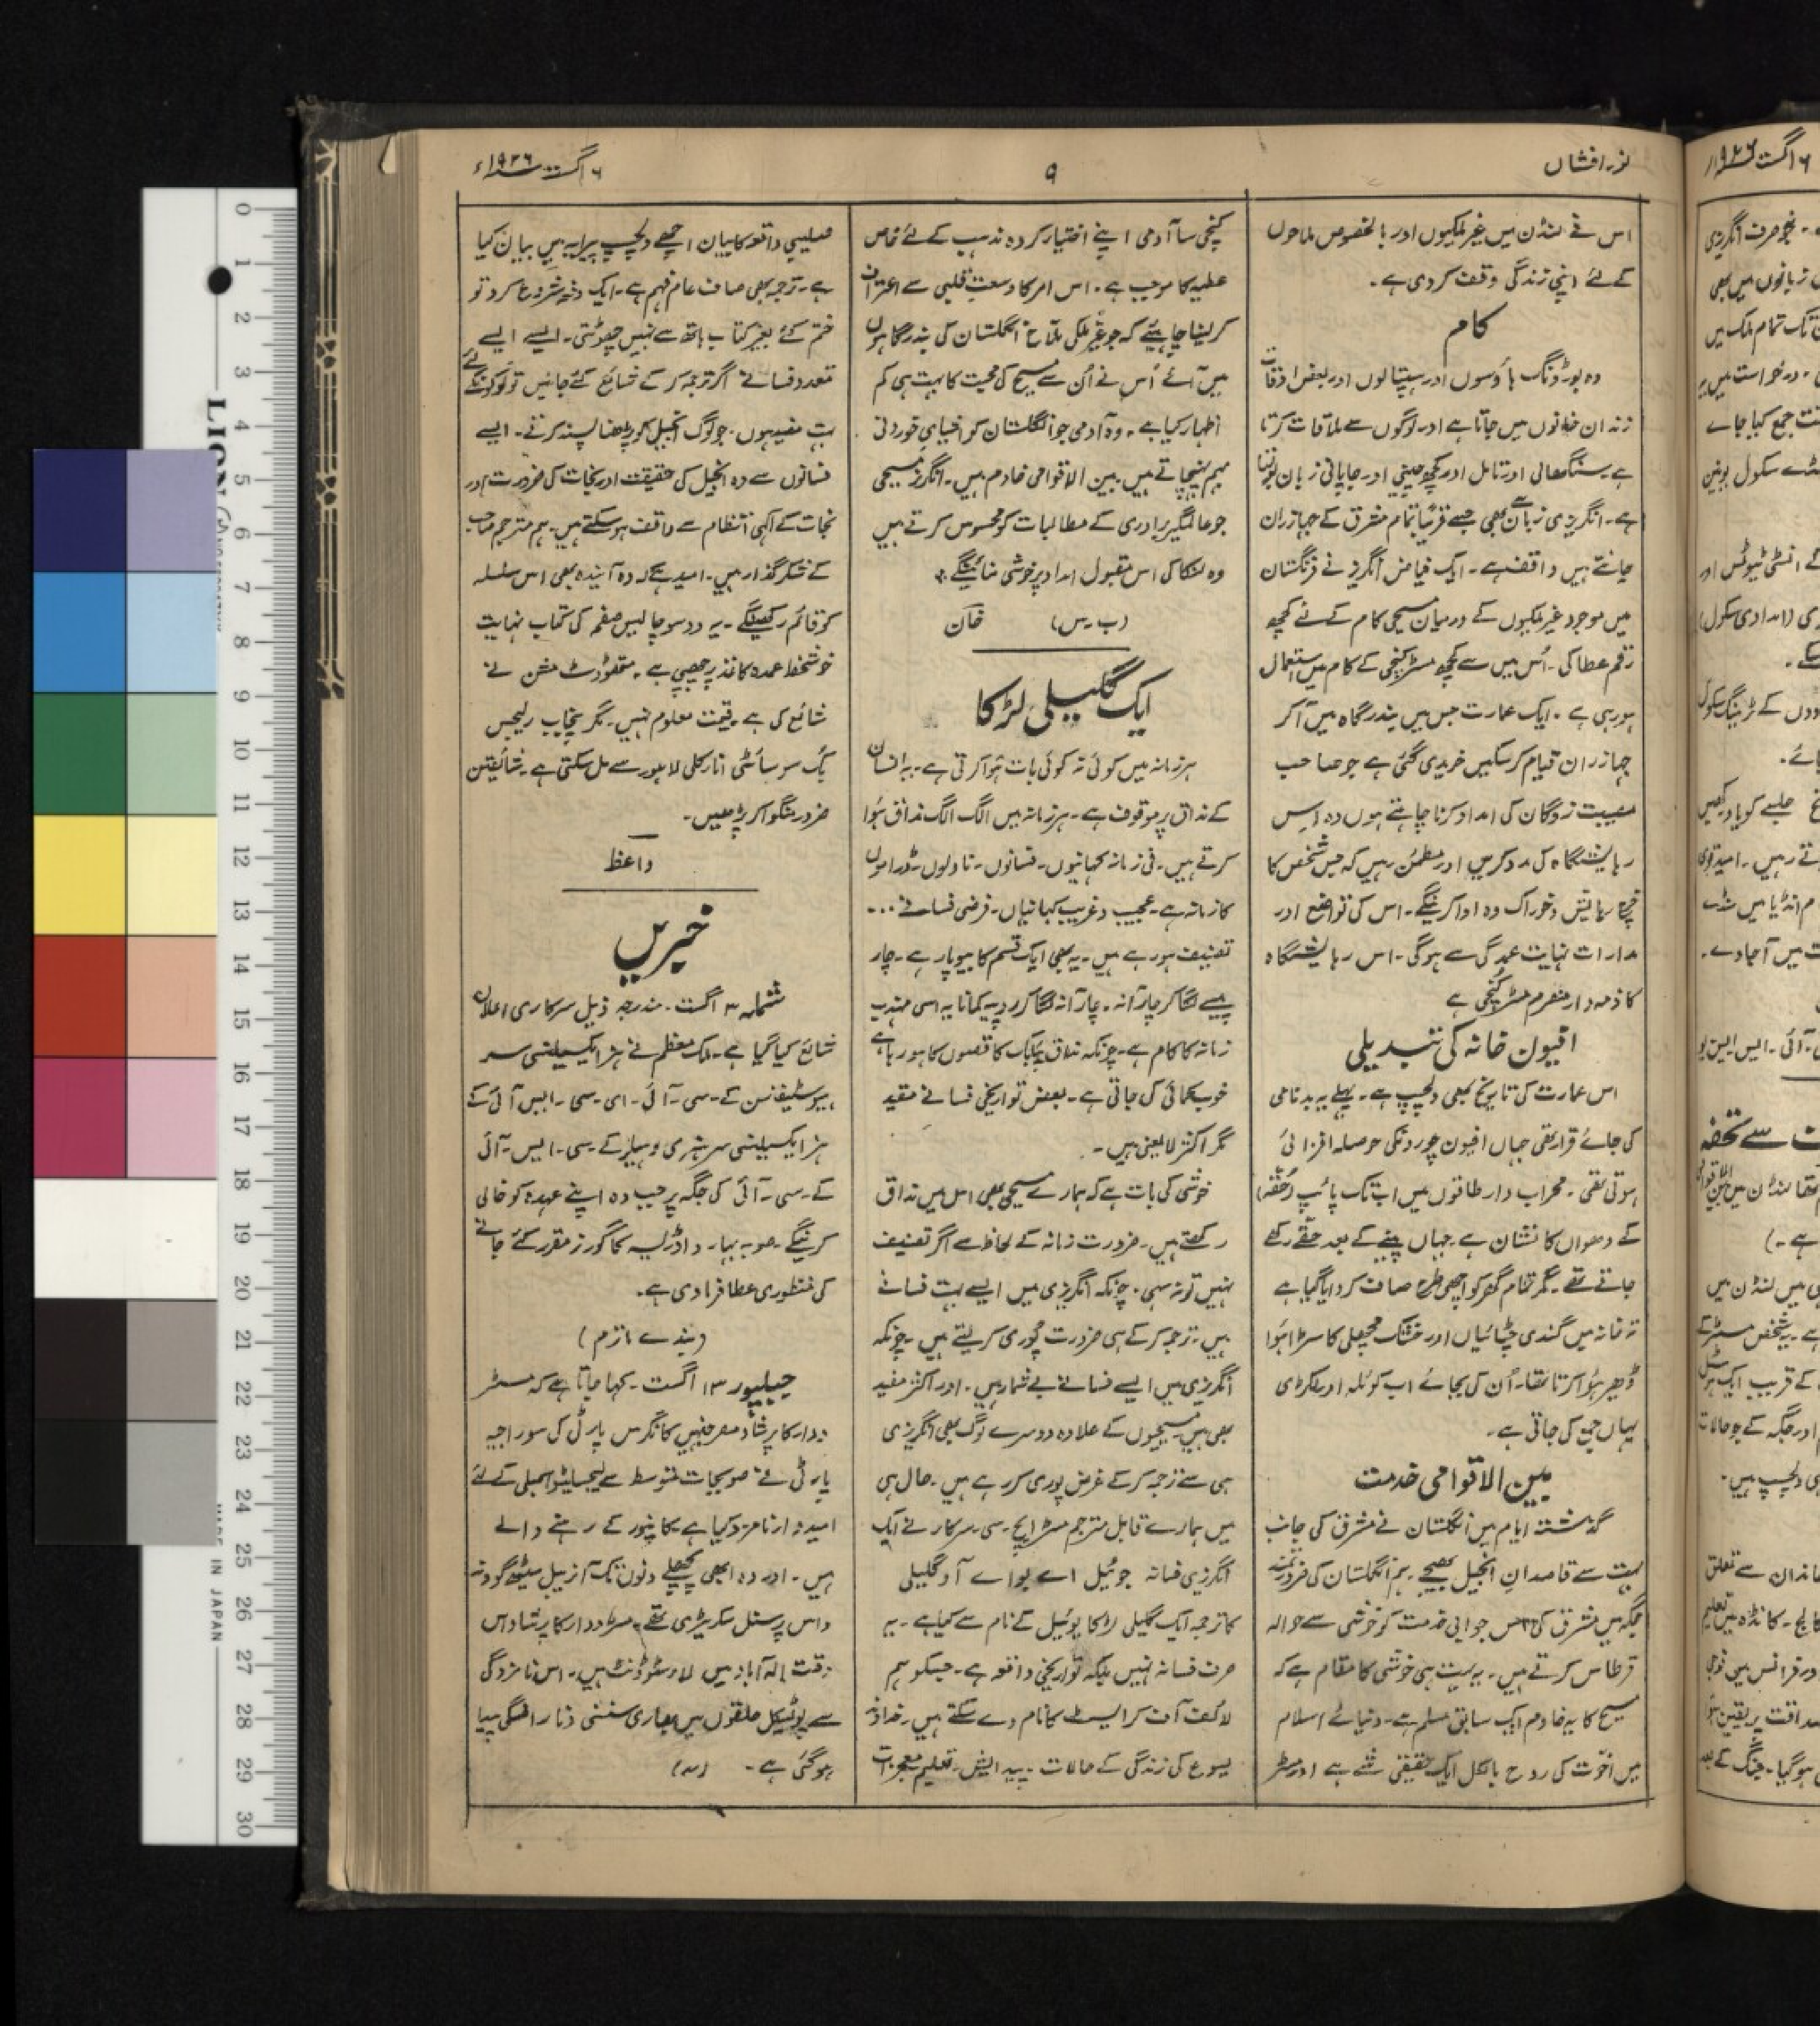 نور افشاں
۹
۶ اگست ۱۹۲۶ء
اس نے لنڈن میں غیر ملکیوں اور بالخصوص ملاحوں
کے لئے اپنی زندگی وقف کر دی ہے۔
کام
وہ بورڈنگ ہاؤسوں اور ہسپتالوں اور بعض اوقات
زندان خانوں میں جاتا ہے اور لوگوں سے ملاقات کرتا
ہے۔ سنگھالی اور تامل اور کچھ چینی اور جاپانی زبان بولتا
ہے۔ انگریزی زبان سے بھی جسے قریباً تمام مشرق کے جہازران
جانتے ہیں واقف ہے۔ ایک فیاض انگریز نے فرنگستان
میں موجود غیر ملکیوں کے درمیان مسیحی کام کے لئے کچھ
رقم عطا کی۔ اُس میں سے کچھ مسٹر کنچی کے کام میں استعمال
ہو رہی ہے۔ ایک عمارت جس میں بندرگاہ میں آکر
جہازران قیام کر سکیں خریدی گئی ہے جو صاحب
مصیبت زدگان کی امداد کرنا چاہتے ہوں وہ اس
رہائیشگاہ کی مدد کریں اور مطمئن رہیں کہ جس شخص کا
خرچ رہائیش وخوراک وہ ادا کرینگے۔ اس کی تواضع اور
مدارات نہایت عمدگی سے ہوگی۔ اس رہائیشگاہ
کا ذمہ دار منصرم مسٹر کنچی ہے
افیون خانہ کی تبدیلی
اس عمارت کی تاریخ بھی دلچسپ ہے۔ پہلے یہ بدنامی
کی جائے قرار تھی جہاں افیون چوروں کی حوصلہ افزائی
ہوتی تھی۔ محراب دار طاقوں میں اب تک پائپ (حُقّہ)
کے دھواں کا نشان ہے جہاں پینے کے بعد حقے رکھے
جاتے تھے۔ مگر تمام گھر کو اچھی طرح صاف کر دیا گیا ہے
تہ خانہ میں گندی چٹائیاں اور خشک مچھلی کا سڑا ہؤا
ڈھیر ہؤا کرتا تھا۔ اُن کی بجائے اب کوئلہ اور لکڑی
یہاں جمع کی جاتی ہے۔
بین الاقوامی خدمت
گذشتہ ایام میں انگلستان نے مشرق کی جانب
بہت سے قاصدانِ انجیل بھیجے۔ ہم انگلستان کی ضرورتمند
جگہ میں مشرق کی اس جوابی خدمت کو خوشی سے حوالہ
قرطاس کرتے ہیں۔ یہ بہت ہی خوشی کا مقام ہے کہ
مسیح کا یہ خادم ایک سابق مسلم ہے۔ دنیائے اسلام
میں اخوّت کی روح بالکل ایک حقیقی شے ہے اور مسٹر
کنچی سا آدمی اپنے اختیار کردہ مذہب کے لئے خاص
عطیہ کا موجب ہے۔ اس امر کا وسعت قلبی سے اعتراف
کر لینا چاہیئے کہ جو غیر ملکی ملاح انگلستان کی بندرگاہوں
میں آئے اُس نے اُن سے مسیح کی محبت کا بہت ہی کم
اظہار کیا ہے۔ وہ آدمی جو انگلستان کو اشیای خوردنی
بہم پہنچاتے ہیں بین الاقوامی خادم ہیں۔ انگریز مسیحی
جو عالمگیر برادری کے مطالبات کو محسوس کرتے ہیں
وہ لنکا کی اس مقبول امداد پر خوشی منائینگے۔
(ب۔ س) خان
ایک گلیلی لڑکا
ہر زمانہ میں کوئی نہ کوئی بات ہؤا کرتی ہے۔ یہ انسان
کے مذاق پر موقوف ہے۔ ہر زمانہ میں الگ الگ مذاق ہؤا
کرتے ہیں۔ فی زمانہ کہانیوں۔ فسانوں۔ ناولوں۔ ڈراموں
کا زمانہ ہے۔ عجیب وغریب کہانیاں۔ فرضی فسانے ...
تصنیف ہو رہے ہیں۔ یہ بھی ایک قسم کا بیوپار ہے۔ چار
پیسے لگا کر چار آنہ۔ چار آنہ لگا کر روپیہ کمانا یہ اسی مہذب
زمانہ کا کام ہے۔ چونکہ مذاق پبلک کا قصوں کا ہو رہا ہے
خوب کمائی کی جاتی ہے۔ بعض تواریخی فسانے مفید
مگر اکثر لایعنی ہیں۔
خوشی کی بات ہے کہ ہمارے مسیحی بھی اس میں مذاق
رکھتے ہیں۔ ضرورت زمانہ کے لحاظ سے اگر تصنیف
نہیں تو نہ سہی۔ چونکہ انگریزی میں ایسے بہت فسانے
ہیں۔ ترجمہ کر کے ہی ضرورت پوری کر لیتے ہیں۔ چونکہ
انگریزی میں ایسے فسانے بے شمار ہیں۔ اور اکثر مفید
بھی ہیں۔ مسیحیوں کے علاوہ دوسرے لوگ بھی انگریزی
ہی سے ترجمہ کر کے غرض پوری کر رہے ہیں۔ حال ہی
میں ہمارے قابل مترجم مسٹر ایچ۔ سی۔ سرکار نے ایک
انگریزی فسانہ جوئیل اے بواے آو گلیلی
کا ترجمہ ایک گلیلی لڑکا یوئیل کے نام سے کیا ہے۔ یہ
صرف فسانہ نہیں بلکہ تواریخی واقعہ ہے۔ جسکو ہم
لائف آف کرائسٹ کا نام دے سکتے ہیں۔ خداوند
یسوع کی زندگی کے حالات۔ پیدایش۔ تعلیم معجزات
صلیبی واقعہ کا بیان اچھے دلچسپ پیرایہ میں بیان کیا
ہے۔ ترجمہ بھی صاف عام فہم ہے۔ ایک دفعہ شروع کرو تو
ختم کئے بغیر کتاب ہاتھ سے نہیں چھوٹتی۔ ایسے ایسے
متعدد فسانے اگر ترجمہ کر کے شائع کئے جائیں تو لوگوں کے لئے
بہت مفید ہوں۔ جو لوگ انجیل کو پڑھنا پسند کرتے۔ ایسے
فسانوں سے وہ انجیل کی حقیقت اور نجات کی ضرورت اور
نجات کے الٰہی انتظام سے واقف ہو سکتے ہیں۔ ہم مترجم صاحب
کے شکر گذار ہیں۔ امید ہے کہ وہ آیندہ بھی اس سلسلہ
کو قائم رکھینگے۔ یہ دو سو چالیس صفحہ کی کتاب نہایت
خوشخط عمدہ کاغذ پر چھپی ہے۔ متھوڈسٹ مشن نے
شائع کی ہے۔ قیمت معلوم نہیں۔ مگر پنجاب ریلیجس
بک سوسائٹی انارکلی لاہور سے مل سکتی ہے۔ شائقین
ضرور منگوا کر پڑھیں۔
واعظ
خبریں
شملہ ۳ اگست۔ مندرجہ ذیل سرکاری اعلان
شائع کیا گیا ہے۔ ملک معظم نے ہز ایکسیلنسی سر
ہیو سٹیفنسن کے۔ سی۔ آئی۔ ای۔ سی۔ ایس آئی کے
ہز ایکسیلینسی سر ہنری وہیلر کے۔ سی۔ ایس۔ آئی
کے۔ سی۔ آئی کی جگہ پر جب وہ اپنے عہدہ کو خالی
کرینگے۔ صوبہ بہار و اڈریسہ کا گورنر مقرر کئے جانے
کی منظوری عطا فرما دی ہے۔
(بندے ماترم)
جبلپور ۱۳ اگست۔ کہا جاتا ہے کہ مسٹر
دوارکا پرشاد مصر جنہیں کانگرس پارٹی کی سوراجیہ
پارٹی نے صوبجات متوسط سے لیجسلیٹو اسمبلی کے لئے
امیدوار نامزد کیا ہے۔ کانپور کے رہنے والے
ہیں۔ اور وہ ابھی پچھلے دنوں تک آنریبل سیٹھ گووند
داس پرسنل سکریٹری تھے۔ مسٹر دوارکا پرشاد اس
وقت الہ آباد میں لا سٹوڈنٹ ہیں۔ اس نامزدگی
سے پولٹیکل حلقوں میں بھاری سنسنی و ناراضگی پیدا
ہوگئی ہے۔